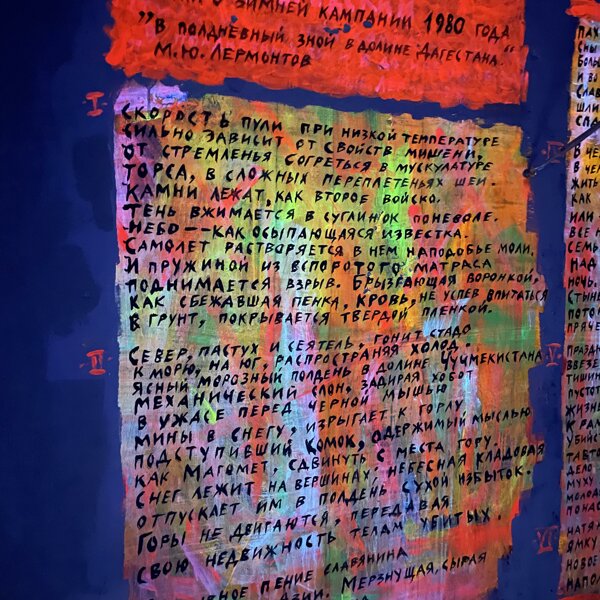 О ЗИМНЕЙ КАМПАНИИ 1980 ГОДА
"В ПОЛДНЕВНЫЙ ЗНОЙ В ДОЛИНЕ ДАГЕСТАНА."
М.Ю. ЛЕРМОНТОВ
I
СКОРОСТЬ ПУЛИ ПРИ НИЗКОЙ ТЕМПЕРАТУРЕ
СИЛЬНО ЗАВИСИТ ОТ СВОЙСТВ МИШЕНИ,
ОТ СТРЕМЛЕНЬЯ СОГРЕТЬСЯ В МУСКУЛАТУРЕ
ТОРСА, В СЛОЖНЫХ ПЕРЕПЛЕТЕНЬЯХ ШЕИ.
КАМНИ ЛЕЖАТ, КАК ВТОРОЕ ВОЙСКО.
ТЕНЬ ВЖИМАЕТСЯ В СУГЛИНОК ПОНЕВОЛЕ.
НЕБО -- КАК ОСЫПАЮЩАЯСЯ ИЗВЕСТКА.
САМОЛЕТ РАСТВОРЯЕТСЯ В НЕМ НАПОДОБЬЕ МОЛИ.
И ПРУЖИНОЙ ИЗ ВСПОРОТОГО МАТРАСА
ПОДНИМАЕТСЯ ВЗРЫВ. БРЫЗГАЮЩАЯ ВОРОНКОЙ,
КАК СБЕЖАВШАЯ ПЕНКА, КРОВЬ, НЕ УСПЕВ ВПИТАТЬСЯ
В ГРУНТ, ПОКРЫВАЕТСЯ ТВЕРДОЙ ПЛЕНКОЙ.
II
СЕВЕР, ПАСТУХ И СЕЯТЕЛЬ, ГОНИТ СТАДО
К МОРЮ, НА ЮГ, РАСПРОСТРАНЯЯ ХОЛОД.
ЯСНЫЙ МОРОЗНЫЙ ПОЛДЕНЬ В ДОЛИНЕ ЧУЧМЕКИСТАНА.
МЕХАНИЧЕСКИЙ СЛОН, ЗАДИРАЯ ХОБОТ
В УЖАСЕ ПЕРЕД ЧЕРНОЙ МЫШЬЮ
МИНЫ В СНЕГУ, ИЗРЫГАЕТ К ГОРЛУ
ПОДСТУПИВШИЙ КОМОК, ОДЕРЖИМЫЙ МЫСЛЬЮ
КАК МАГОМЕТ, СДВИНУТЬ С МЕСТА ГОРУ.
СНЕГ ЛЕЖИТ НА ВЕРШИНАХ; НЕБЕСНАЯ КЛАДОВАЯ
ОТПУСКАЕТ ИМ В ПОЛДЕНЬ СУХОЙ ИЗБЫТОК.
ГОРЫ НЕ ДВИГАЮТСЯ, ПЕРЕДАВАЯ
СВОЮ НЕДВИЖНОСТЬ ТЕЛАМ УБИТЫХ.
ПЕНИЕ СЛАВЯНИНА
МЕРЗНУЩАЯ, СЫРАЯ
В ЧЕ
ЖИТЬ
КАК
ИЛИ
ВСЕ
СЕМЬ
НАД
НОЧЬ.
ПОТО
ПРЯЧЕ
V
ТИШИН
ПУСТОТ
ЖИЗНЕ
К РАМ
УБИЙС
ТАВТО
ДЕЛО
МУХУ
ПОНАС
VI
ЯМКУ
НОВОЕ